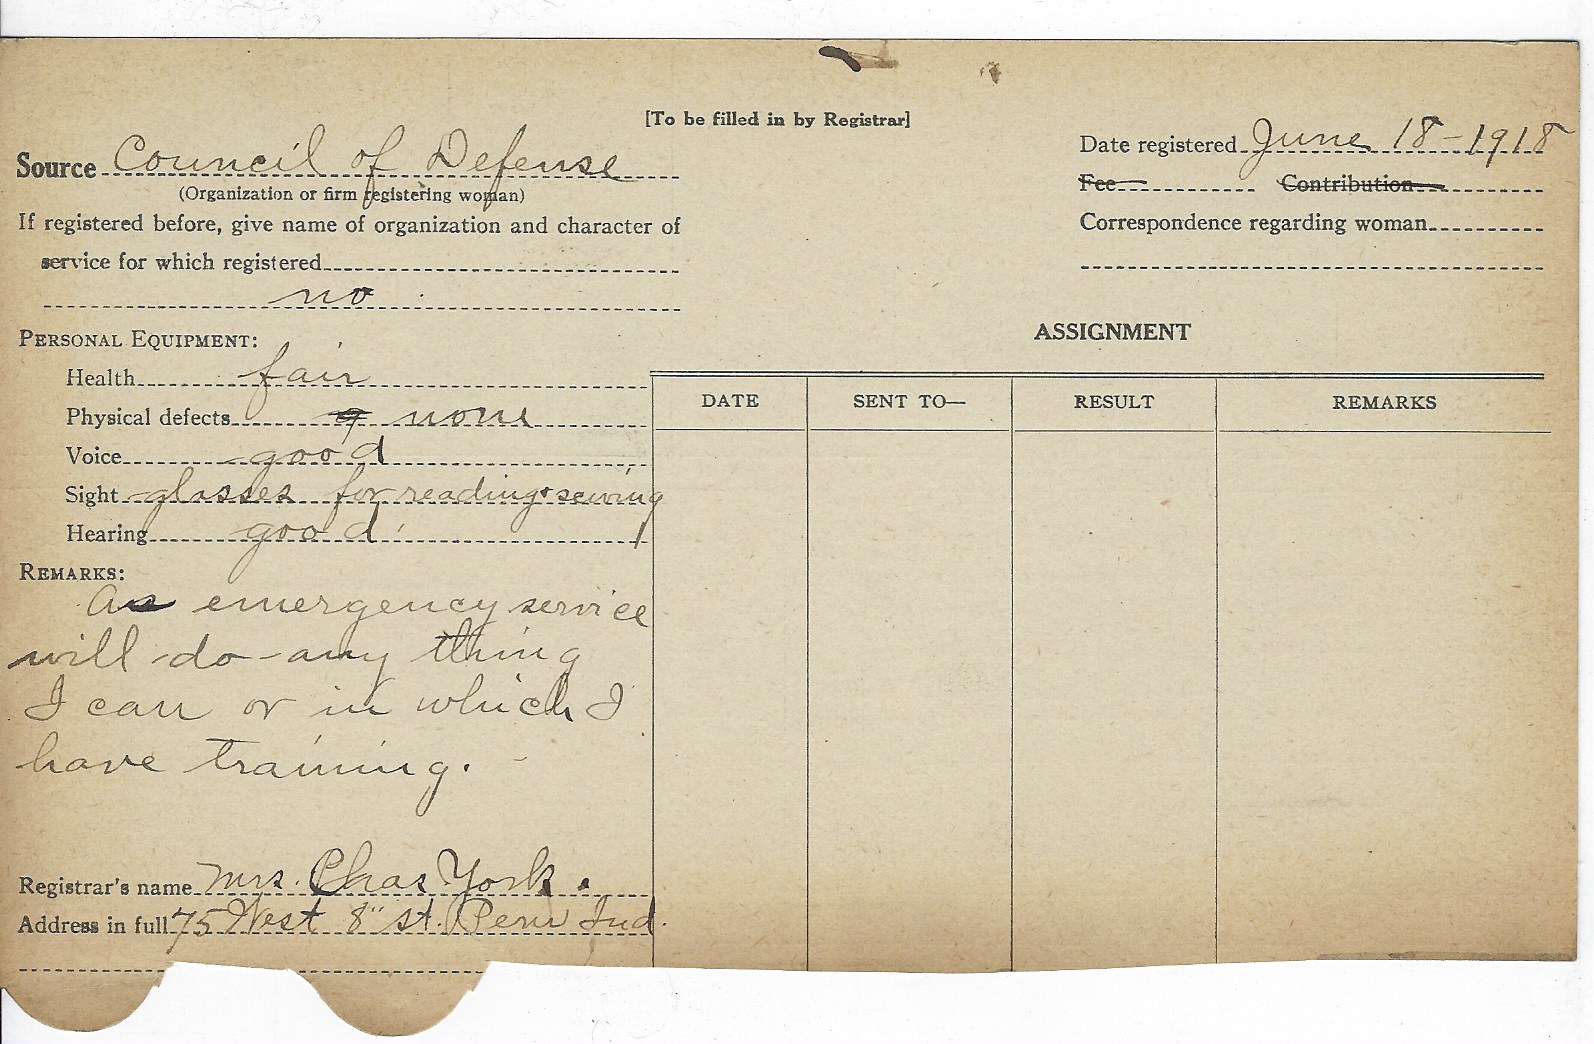 [To be filled in by Registrar]
Source Council of Defense
(Organization or firm registering woman)
If registered before, give name of organization and character of
service for which registered
no
Date registered June 18-1918
Fee Contribution
Correspondence regarding woman
PERSONAL EQUIPMENT:
Health fair
Physical defects none
Voice good
Sight glasses for reading & sewing
Hearing good
REMARKS:
As emergency service
will do any thing
I can or in which I
have training.
Registrar's name Mrs. Chas York.
Address in full 75 West 8" st. Peru Ind.
ASSIGNMENT
DATE SENT TO— RESULT REMARKS